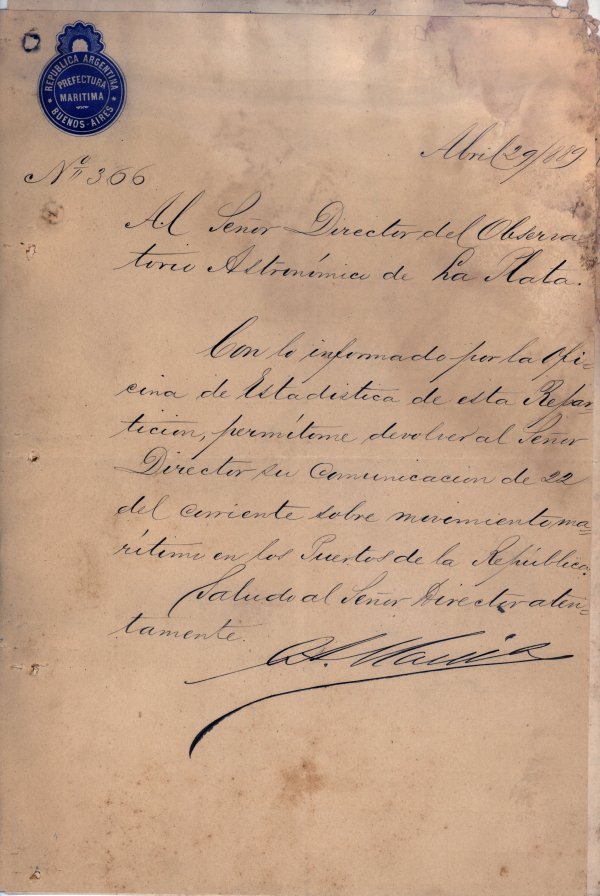 REPUBLICA ARGENTINA
PREFECTURA
MARITIMA
BUENOS-AIRES
Abril 29/889
Nº 366
Al Señor Director del Observa-
torio Astronómico de La Plata.
Con lo informado por la Ofi-
cina de Estadistica de esta Repar-
ticion, permítome devolver al Señor
Director su Comunicacion de 22
del corriente sobre movimiento ma-
rítimo en los Puertos de la República.
Saludo al Señor Director aten-
tamente.